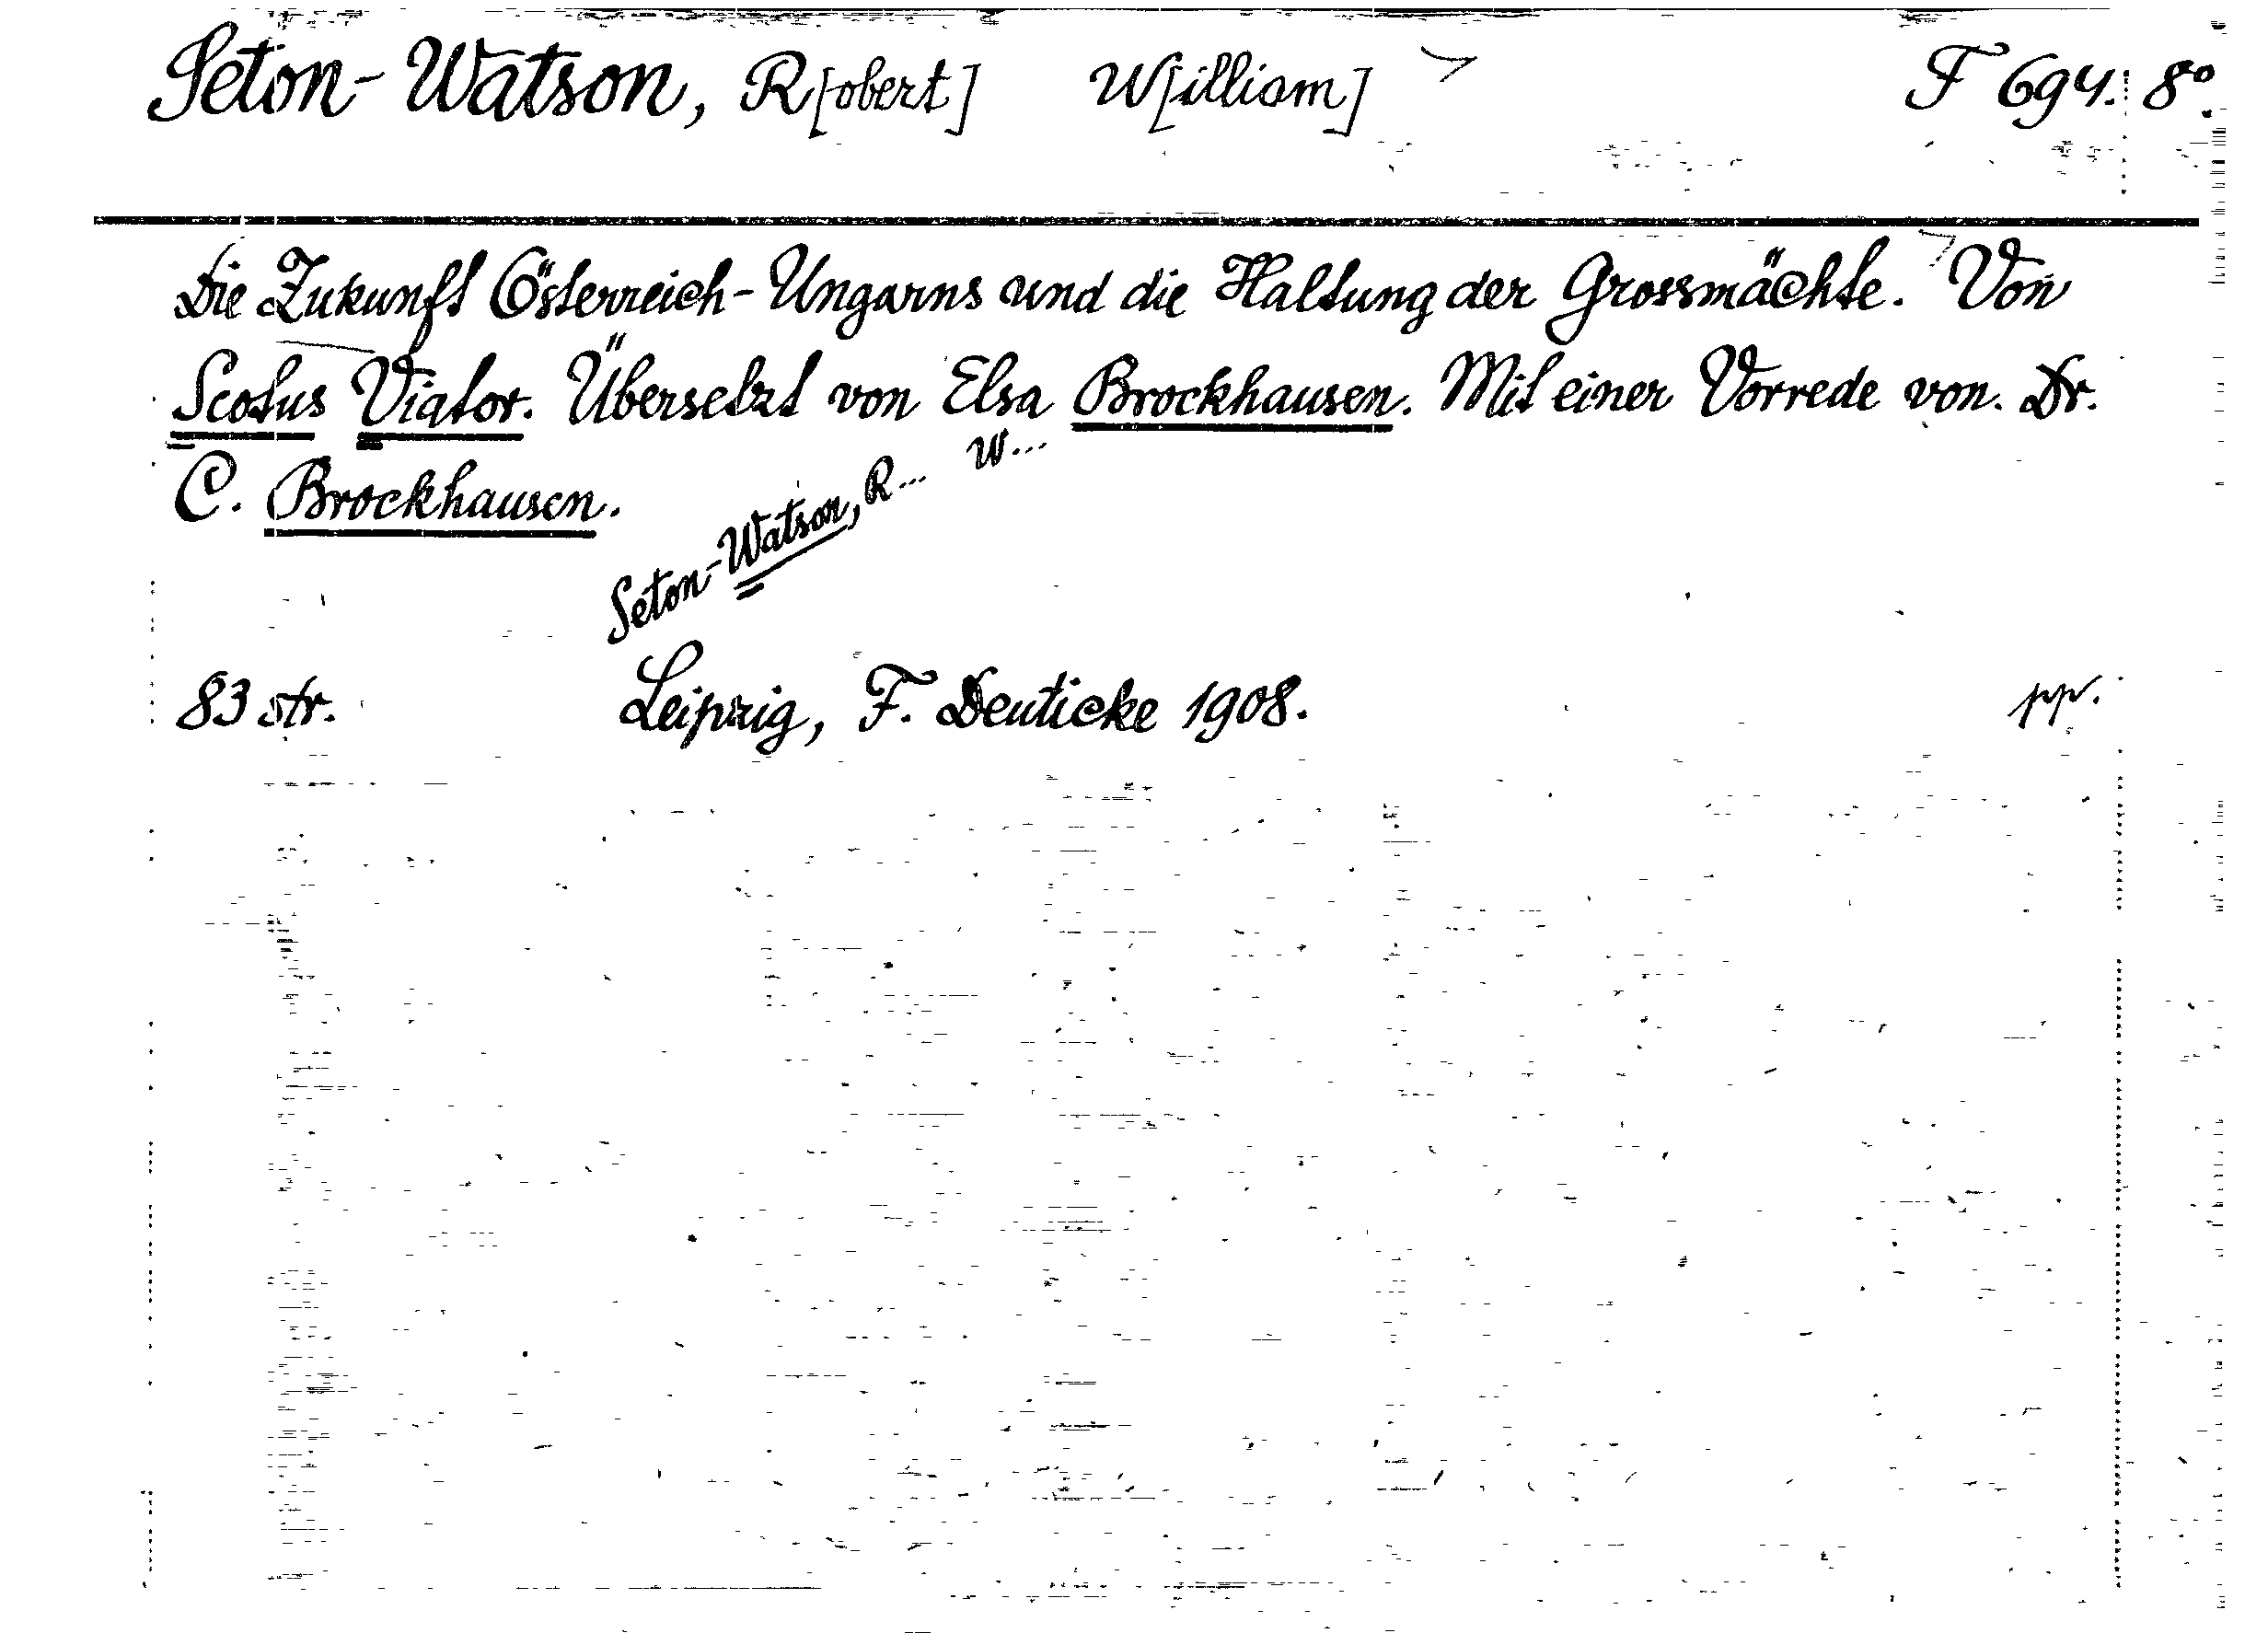 Seton-Watson, R[obert] W[illiam] F 694. 8°.
Die Zukunft Österreich-Ungarns und die Haltung der Grossmächte. Von
Scotus Viator. Übersetzt von Elsa Brockhausen. Mit einer Vorrede von. Dr.
C. Brockhausen.
Seton-Watson, R... W...
83 str. Leipzig, F. Deuticke 1908. pp.